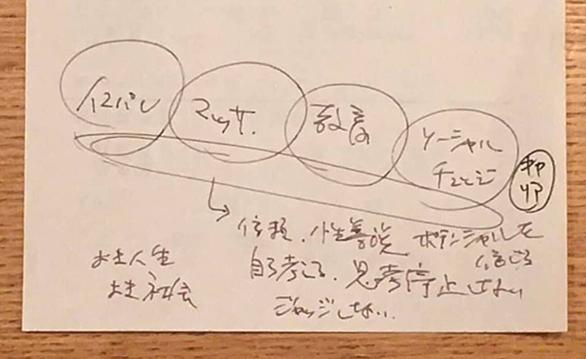 イスパル
マッサ.
教育
ソーシャル
チェンジ
キャ
リア
信頼、性善説 ポテンシャルを
信じる
自ら考える、思考停止しない
ジャッジしない..
よき人生
よき社会